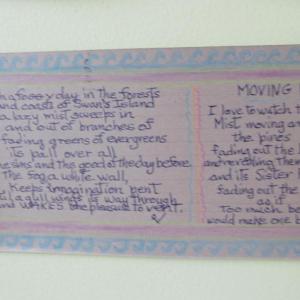 a foggy day in the forests
and coast of Swan's Island
a lazy mist sweeps in
and out of branches of
fading greens of evergreens
its pall over all
the sins and the good of the day before
The fog a white wall
Keeps imagination pent
til a gull winds its way through
and WAKES the pleasure to vent.
MOVING
I love to watch
Mist moving an
the pines
fading out the
and revealing them
and its Sister
fading out the
as if
Too much be
would make one b